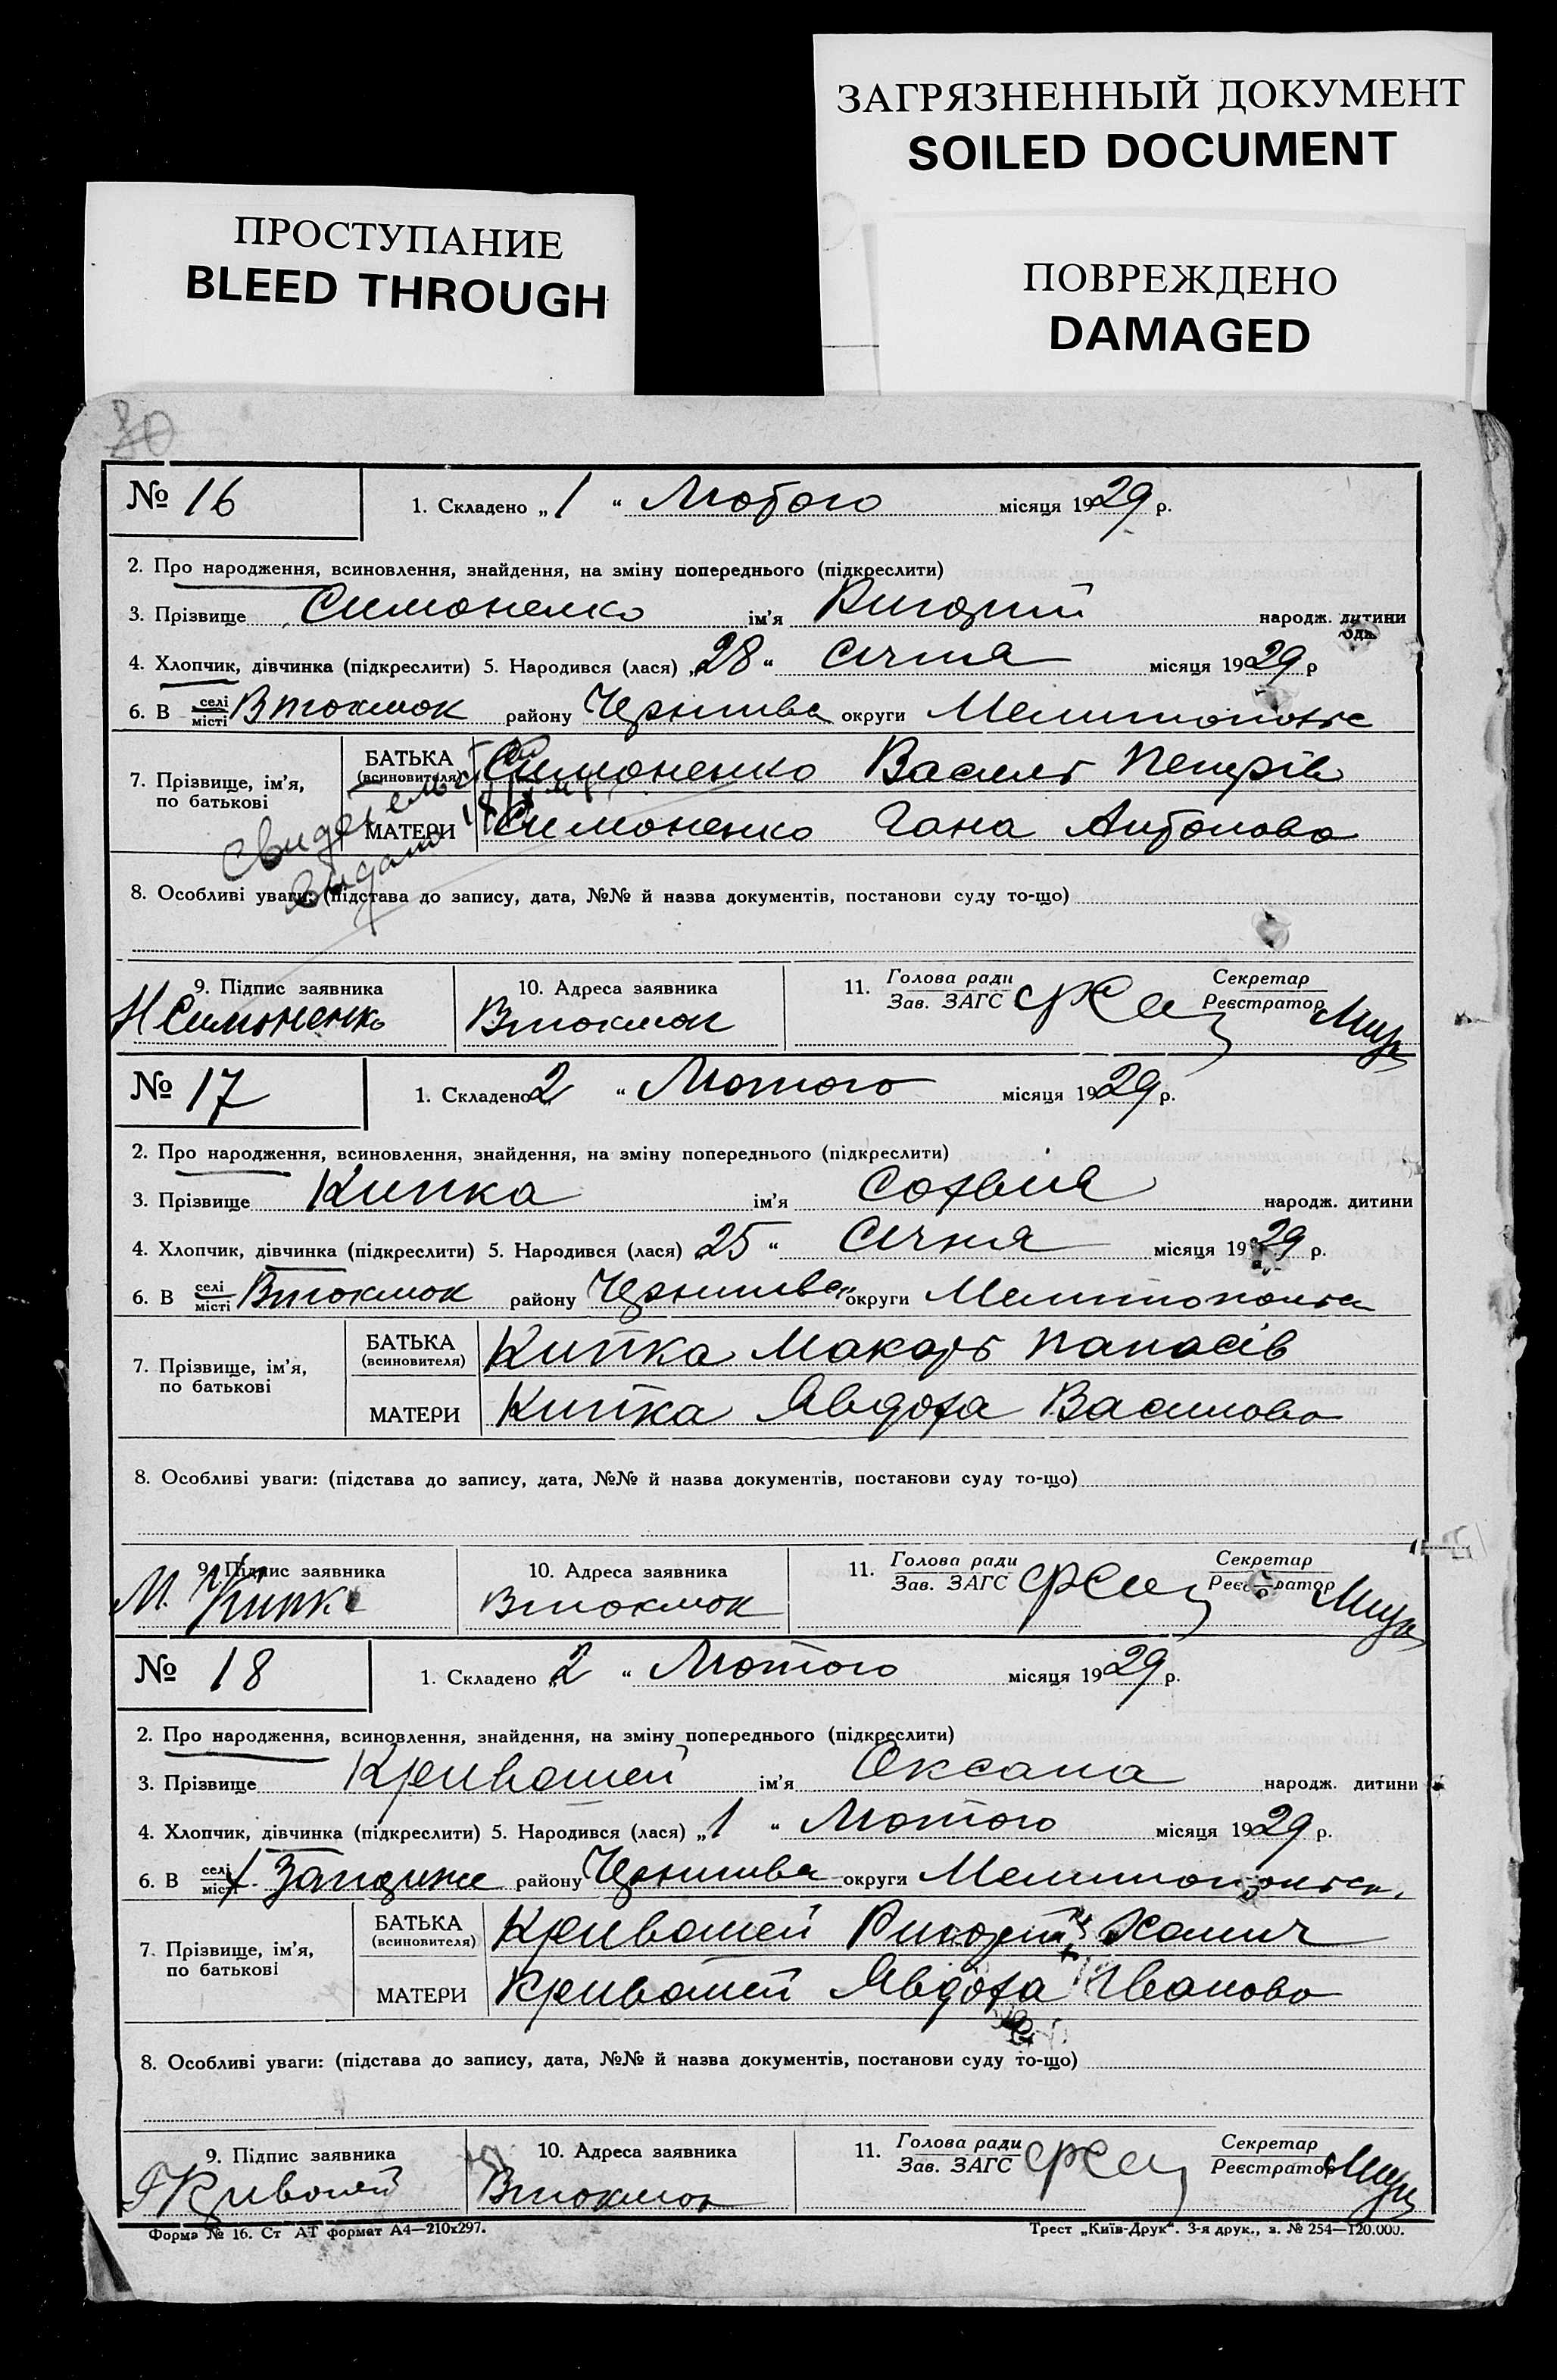 ЗАГРЯЗНЕННЫЙ ДОКУМЕНТ
SOILED DOCUMENT
ПРОСТУПАНИЕ
BLEED THROUGH
ПОВРЕЖДЕНО
DAMAGED
№ 16 1. Складено „1“ Лютого місяця 1929 р.
2. Про народження, всиновлення, знайдення, на зміну попереднього (підкреслити)
3. Прізвище Симоненко ім'я народж. дитини
4. Хлопчик, дівчинка (підкреслити) 5. Народився (лася) „28“ Січня місяця 1929 р
6. В селі місті Втокмок району Чернигівка округи
7. Прізвище, ім'я, по батькові БАТЬКА (всиновителя) Симоненко Василь Петрів
МАТЕРИ Симоненко Гана Антонова
8. Особливі уваги: (підстава до запису, дата, №№ й назва документів, постанови суду то-що)
9. Підпис заявника 10. Адреса заявника 11. Голова ради Зав. ЗАГС Секретар Реєстратор
Н Симоненко Втокмок
№ 17 1. Складено „2“ Лютого місяця 1929 р.
2. Про народження, всиновлення, знайдення, на зміну попереднього (підкреслити)
3. Прізвище Кипка ім'я Софвия народж. дитини
4. Хлопчик, дівчинка (підкреслити) 5. Народився (лася) 25“ Січня місяця 1929 р.
6. В селі місті Втокмок району округи
7. Прізвище, ім'я, по батькові БАТЬКА (всиновителя) Кипка Макарь Панасів
МАТЕРИ Кипка Явдоха Василова
8. Особливі уваги: (підстава до запису, дата, №№ й назва документів, постанови суду то-що)
9. Підпис заявника 10. Адреса заявника 11. Голова ради Зав. ЗАГС Секретар Реєстратор
М. Кипка Втокмок
№ 18 1. Складено „2“ Лютого місяця 1929 р.
2. Про народження, всиновлення, знайдення, на зміну попереднього (підкреслити)
3. Прізвище Кривошей ім'я Оксана народж. дитини
4. Хлопчик, дівчинка (підкреслити) 5. Народився (лася) „1“ Лютого місяця 1929 р.
6. В селі місті району округи
7. Прізвище, ім'я, по батькові БАТЬКА (всиновителя) Кривошей
МАТЕРИ Кривошей Явдоха Іванова
8. Особливі уваги: (підстава до запису, дата, №№ й назва документів, постанови суду то-що)
9. Підпис заявника 10. Адреса заявника 11. Голова ради Зав. ЗАГС Секретар Реєстратор
Кривошей Втокмок
Форма № 16. Ст АТ формат А4—210х297. Трест „Київ-Друк“. 3-я друк., з. № 254—120.000.